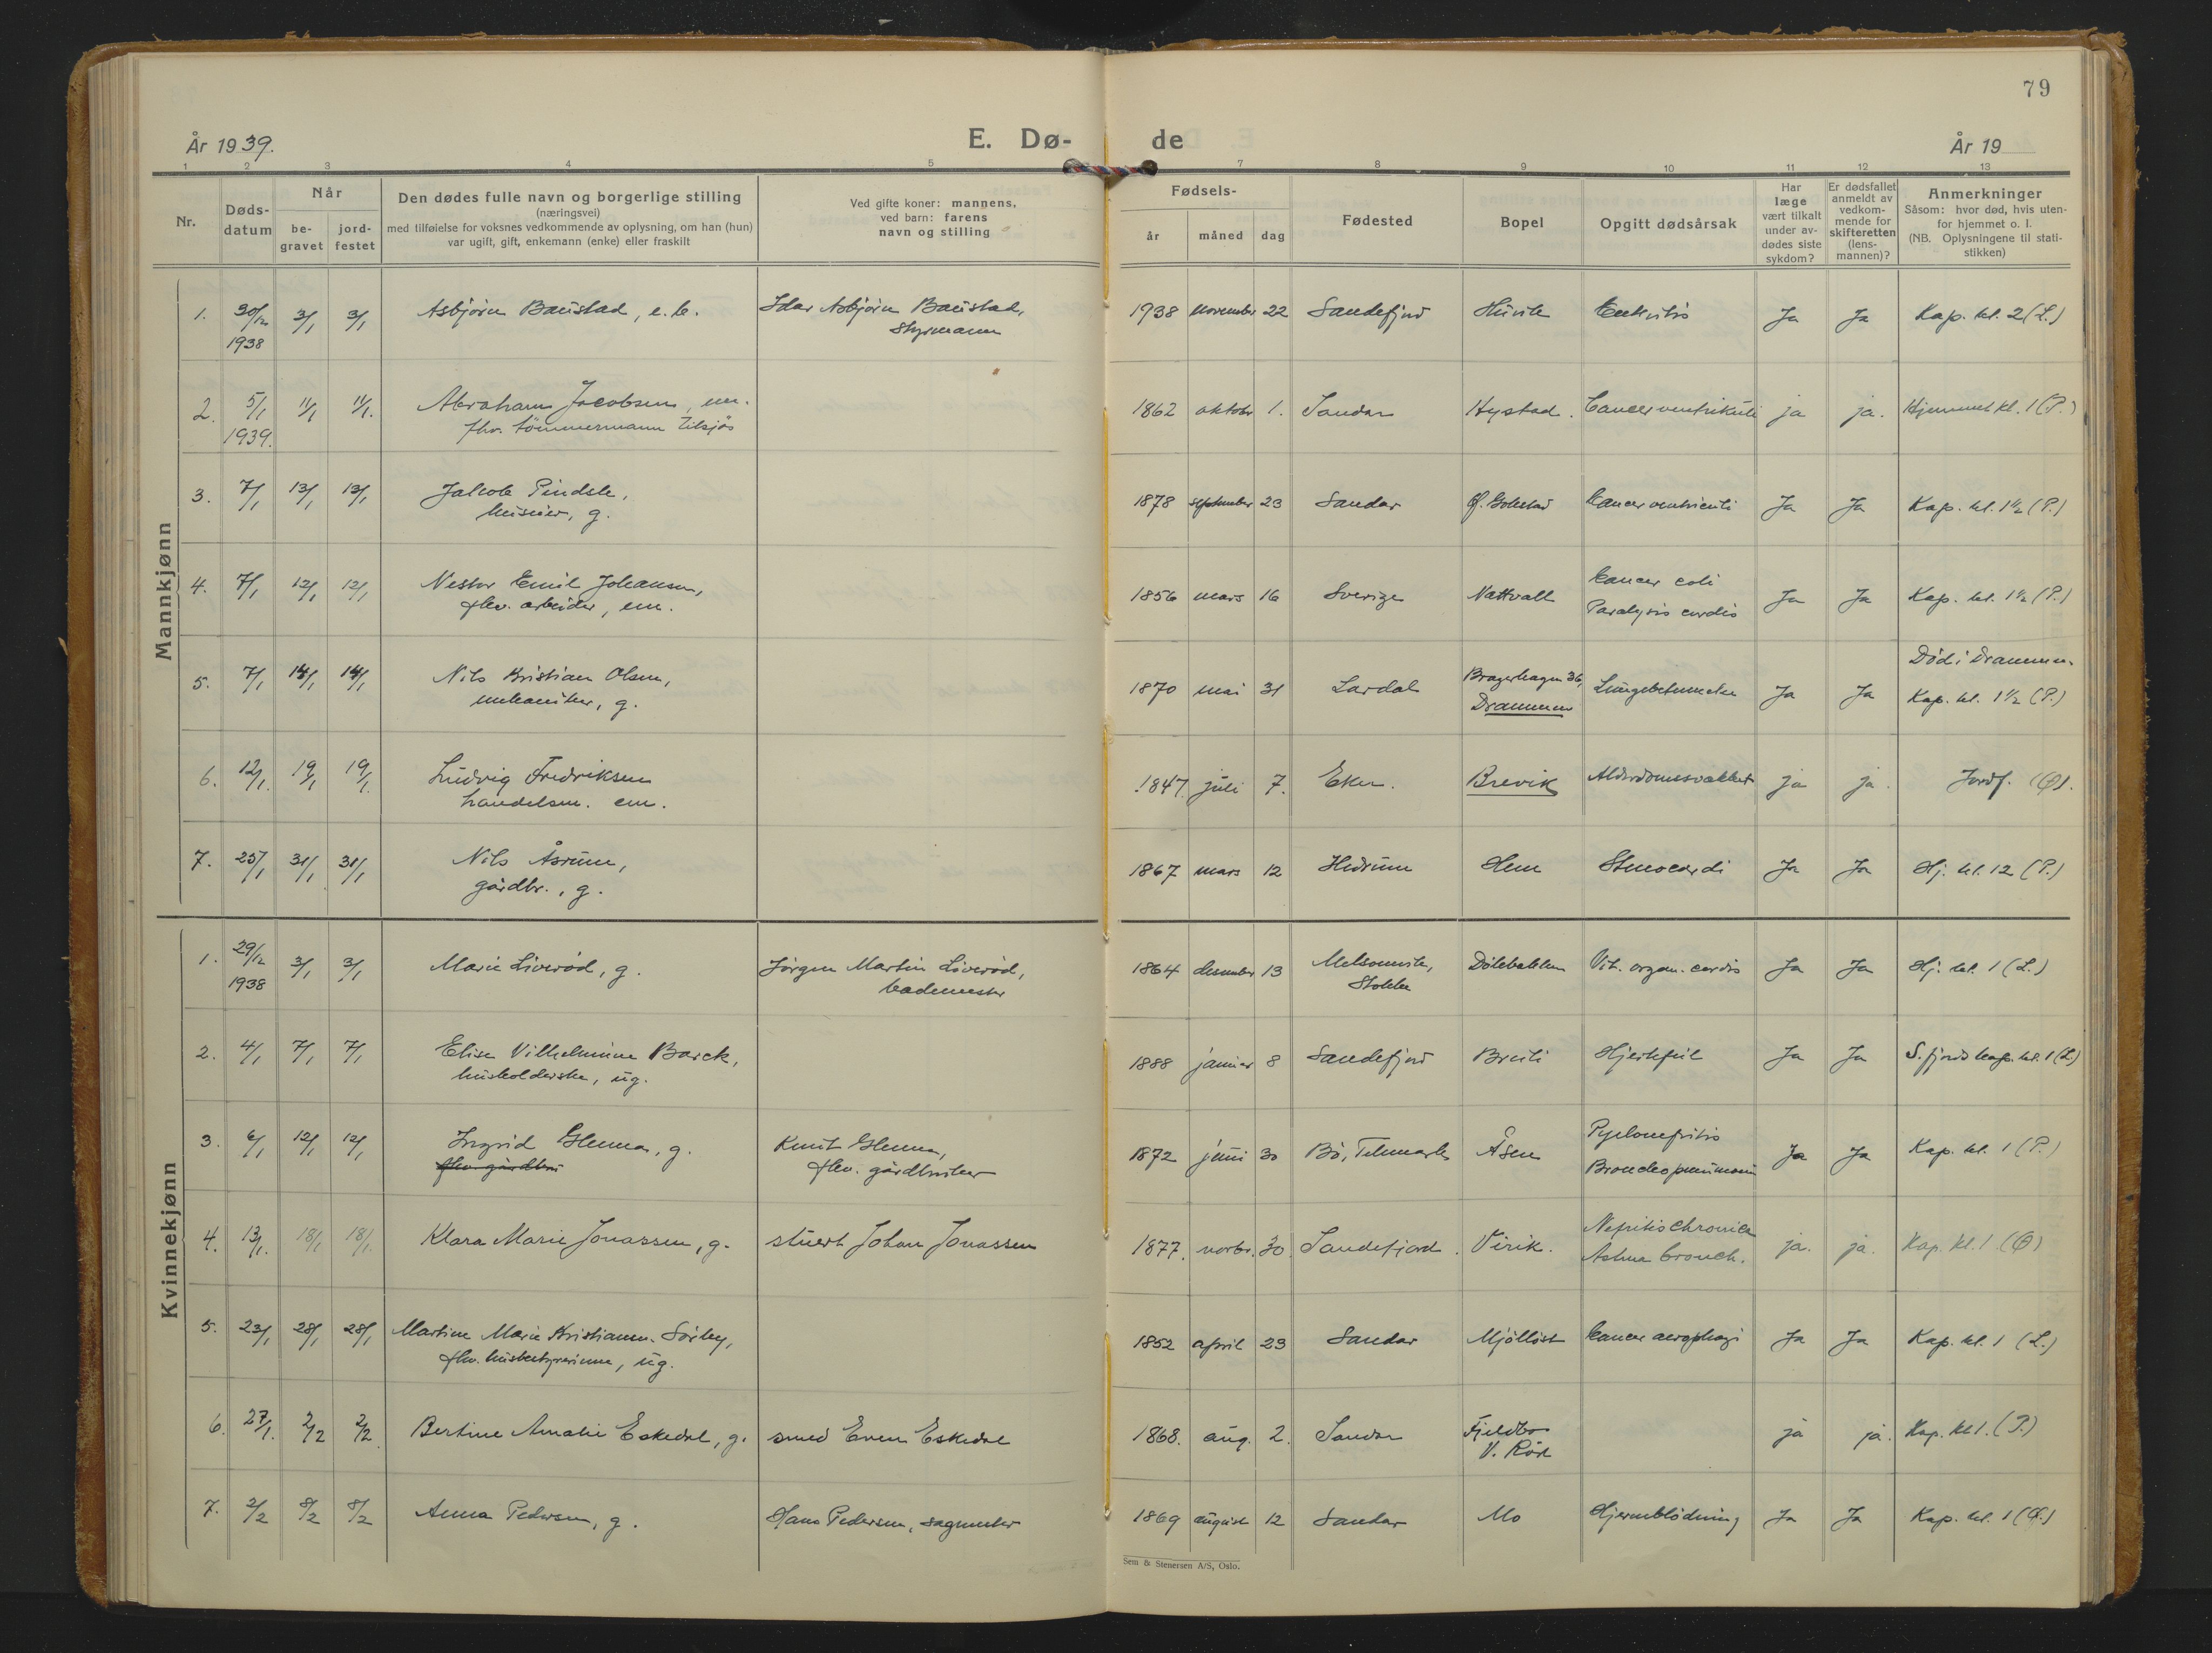 79
År 1939.
E. Dø-
de
År 19
1 2 3 4 5 7 8 9 10 11 12 13
Nr.
Døds-
datum
Når
be-
gravet
jord-
festet
Den dødes fulle navn og borgerlige stilling
(næringsvei)
med tilføielse for voksnes vedkommende av oplysning, om han (hun)
var ugift, gift, enkemann (enke) eller fraskilt
Ved gifte koner: mannens,
ved barn: farens
navn og stilling
Fødsels-
år måned dag
Fødested
Bopel
Opgitt dødsårsak
Har
læge
vært tilkalt
under av-
dødes siste
sykdom?
Er dødsfallet
anmeldt av
vedkom-
mende for
skifteretten
(lens-
mannen)?
Anmerkninger
Såsom: hvor død, hvis uten-
for hjemmet o. l.
(NB. Oplysningene til stati-
stikken)
Mannkjønn
1. 30/12 3/1 3/1 Asbjørn Baustad, e. b. Idar Asbjørn Baustad, 1938 november 22 Sandefjord Ja Ja Kap. kl. 2 (L.)
1938 Styrmann
2. 5/1 11/1 11/1. Abraham Jacobsen, em. 1862 oktobr 1. Sandar Hystad. Cancer ventrikuli ja ja. Hjemmet kl. 1 (P.)
1939. fhv. tömmermann tilsjös
3. 7/1 13/1 13/1 Jakob Pindsle, 1878 september 23 Sandar Ø. Gokstad Cancer ventriculi Ja Ja Kap. kl. 1½ (P.)
huseier, g.
4. 7/1 12/1 12/1 Nestor Emil Johansen, 1856 mars 16 Sverige Nattvall Cancer coli Ja Ja Kap. kl. 1½ (P.)
fhv. arbeider, em. Paralysis cordis
5. 7/1 14/1 14/1 Nils Kristian Olsen, 1870 mai 31 Lardal Bragerhagen 36, Lungebetennelse Ja Ja Død i Drammen.
mekaniker, g. Drammen Kap. kl. 1½ (P.)
6. 12/1. 19/1 19/1. Ludvig Fredriksen 1847. juli 7. Eker. Brevik Alderdomssvakhet ja ja. Jordf. (Ø).
handelsm. em.
7. 25/1 31/1 31/1 Nils Åsrum, 1867 mars 12 Hedrum Hem Stenocardi Ja Ja Hj. kl. 12 (P.)
gårdbr., g.
Kvinnekjønn
1. 29/12 3/1 3/1 Marie Liverød, g. Jørgen Martin Liverød, 1864 desember 13 Melsomvik, Dølebakken Vit. organ. cordis Ja Ja Hj. kl. 1 (L.)
1938 bademester Stokke
2. 4/1 7/1 7/1 Elise Vilhelmine Barck, 1888 januar 8 Sandefjord Breili Hjertefeil Ja Ja S.fjords kap. kl. 1 (L)
husholderske, ug.
3. 6/1 12/1 12/1 Ingrid Glenna, g. Knut Glenna, 1872 juni 30 Bø, Telemark Åsen Pyelonefritis Ja Ja Kap. kl. 1 (P.)
fhv. gårdbru fhv. gårdbruker Bronchopneumoni
4. 13/1. 18/1 18/1. Klara Marie Jonassen, g. stuert Johan Jonassen 1877. novbr. 30. Sandefjord. Virik. Nefritis chronica ja. ja. Kap. kl. 1 (Ø)
Astma bronch.
5. 23/1 28/1 28/1 Martine Marie Kristiansen Sörby, 1852 april 23 Sandar Mjøllöst Cancer aerophagi Ja Ja Kap. kl. 1 (L.)
fhv. husbestyrerinne, ug.
6. 27/1. 2/2 2/2 Bertine Amalie Eskedal, g. smed Even Eskedal 1868. aug. 2. Sandar Fjeldbo ja ja. Kap. kl 1. (P.)
V. Rød
7. 2/2 8/2 8/2 Anna Pedersen, g. Hans Pedersen, sagmester 1869 august 12 Sandar Mo Hjerneblödning Ja Ja Kap. kl. 1 (Ø.)
Sem & Stenersen A/S, Oslo.